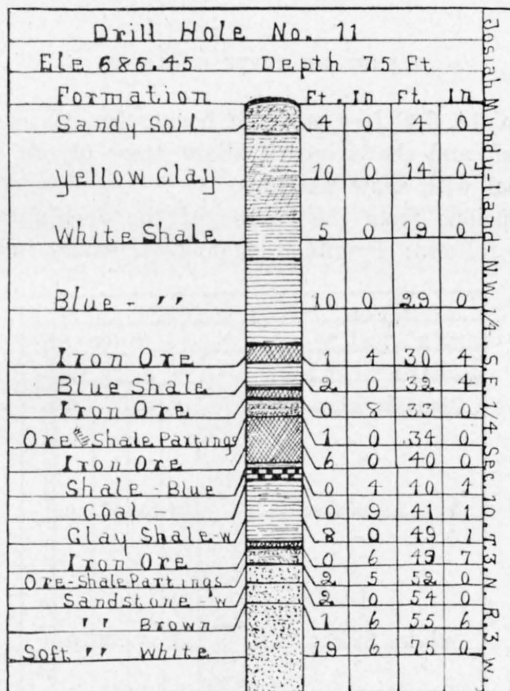 Drill Hole No. 11
Ele 686.45 Depth 75 Ft
Formation Ft. In Ft. In
Sandy Soil 4 0 4
Yellow Clay 10 0 14 0
White Shale 5 0 19 0
Blue - " 10 0 29 0
Iron Ore 1 4 30 4
Blue Shale 2 0 32 4
Iron Ore 0 8 33 0
Ore & Shale Partings 1 0 34 0
Iron Ore 6 0 40 0
Shale - Blue 0 4 40 4
Coal 0 9 41 1
Clay Shale-w 8 0 49 1
Iron Ore 0 6 49 7
Ore-Shale Partings 2 5 52 0
Sandstone w 2 0 54 0
" Brown 1 6 55 6
Soft " White 19 6 75 0
Josiah Mundy-Land-N.W. 1/4 S.E. 1/4. Sec. 10. T. 3. N. R. 3. W.